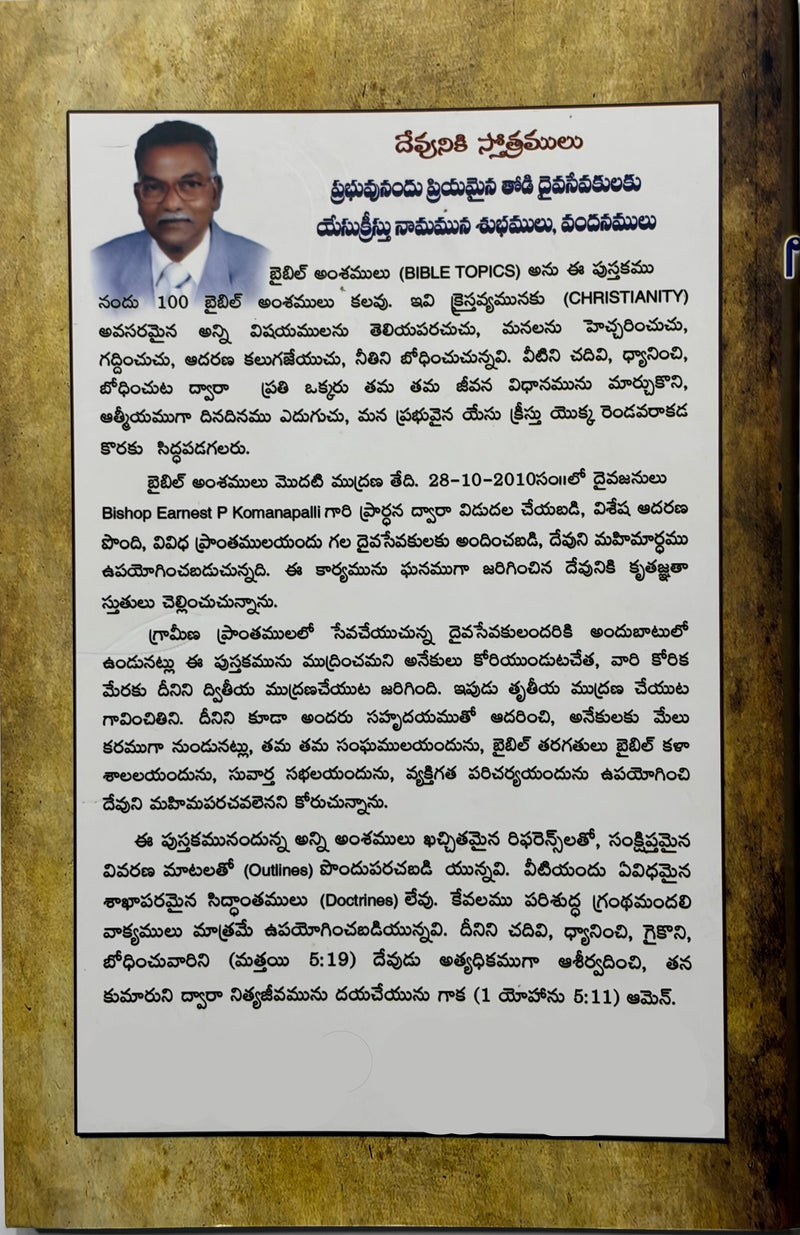 దేవునికి స్తోత్రములు
ప్రభువునందు ప్రియమైన తోడి దైవసేవకులకు
యేసుక్రీస్తు నామమున శుభములు, వందనములు
బైబిల్ అంశములు (BIBLE TOPICS) అను ఈ పుస్తకము
నందు 100 బైబిల్ అంశములు కలవు. ఇవి క్రైస్తవ్యమునకు (CHRISTIANITY)
అవసరమైన అన్ని విషయములను తెలియపరచుచు, మనలను హెచ్చరించుచు,
గద్దించుచు, ఆదరణ కలుగజేయుచు, నీతిని బోధించుచున్నవి. వీటిని చదివి, ధ్యానించి,
బోధించుట ద్వారా ప్రతి ఒక్కరు తమ తమ జీవన విధానమును మార్చుకొని,
ఆత్మీయముగా దినదినము ఎదుగుచు, మన ప్రభువైన యేసు క్రీస్తు యొక్క రెండవరాకడ
కొరకు సిద్ధపడగలరు.
బైబిల్ అంశములు మొదటి ముద్రణ తేది. 28-10-2010సం॥లో దైవజనులు
Bishop Earnest P Komanapalli గారి ప్రార్థన ద్వారా విడుదల చేయబడి, విశేష ఆదరణ
పొంది, వివిధ ప్రాంతములయందు గల దైవసేవకులకు అందించబడి, దేవుని మహిమార్థము
ఉపయోగించబడుచున్నది. ఈ కార్యమును ఘనముగా జరిగించిన దేవునికి కృతజ్ఞతా
స్తుతులు చెల్లించుచున్నాను.
గ్రామీణ ప్రాంతములలో సేవచేయుచున్న దైవసేవకులందరికి అందుబాటులో
ఉండునట్లు ఈ పుస్తకమును ముద్రించమని అనేకులు కోరియుండుటచేత, వారి కోరిక
మేరకు దీనిని ద్వితీయ ముద్రణచేయుట జరిగింది. ఇపుడు తృతీయ ముద్రణ చేయుట
గావించితిని. దీనిని కూడా అందరు సహృదయముతో ఆదరించి, అనేకులకు మేలు
కరముగా నుండునట్లు, తమ తమ సంఘములయందును, బైబిల్ తరగతులు బైబిల్ కళా
శాలలయందును, సువార్త సభలయందును, వ్యక్తిగత పరిచర్యయందును ఉపయోగించి
దేవుని మహిమపరచవలెనని కోరుచున్నాను.
ఈ పుస్తకమునందున్న అన్ని అంశములు ఖచ్చితమైన రిఫరెన్స్‌లతో, సంక్షిప్తమైన
వివరణ మాటలతో (Outlines) పొందుపరచబడి యున్నవి. వీటియందు ఏవిధమైన
శాఖాపరమైన సిద్ధాంతములు (Doctrines) లేవు. కేవలము పరిశుద్ధ గ్రంథమందలి
వాక్యములు మాత్రమే ఉపయోగించబడియున్నవి. దీనిని చదివి, ధ్యానించి, గైకొని,
బోధించువారిని (మత్తయి 5:19) దేవుడు అత్యధికముగా ఆశీర్వదించి, తన
కుమారుని ద్వారా నిత్యజీవమును దయచేయును గాక (1 యోహాను 5:11) ఆమెన్.